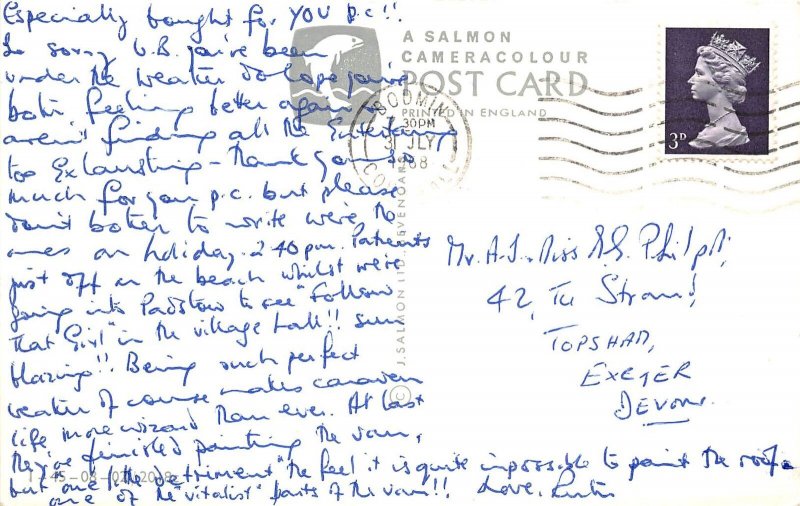 Especially bought for YOU p.c!!
So sorry U.B. you've been
under the weather do hope you're
both feeling better again &
aren't finding all the Entertaining
too Exhausting - Thank you so
much for your p.c. but please
don't bother to write we're the
ones on holiday. 2 40 pm. Patients
just off on the beach whilst we're
going into Padstow to see "Follow
That Girl" in the village hall!! sun
blazing!! Being such perfect
weather of course makes caravan
life more wizard than ever. At last
they've finished painting the van,
but one to the detriment "the feel" it is quite impossible to paint the roof -
one of the "vitalist" parts of the van!! Love,
A SALMON
CAMERACOLOUR
POST CARD
PRINTED IN ENGLAND
BODMIN
30PM
JLY
68
CORNWALL
3D
© J. SALMON LTD., SEVENOAKS
Mr. A.J. Miss S.G. Philp
42, The Strand,
TOPSHAM,
EXETER
DEVON.
1-45-08-02